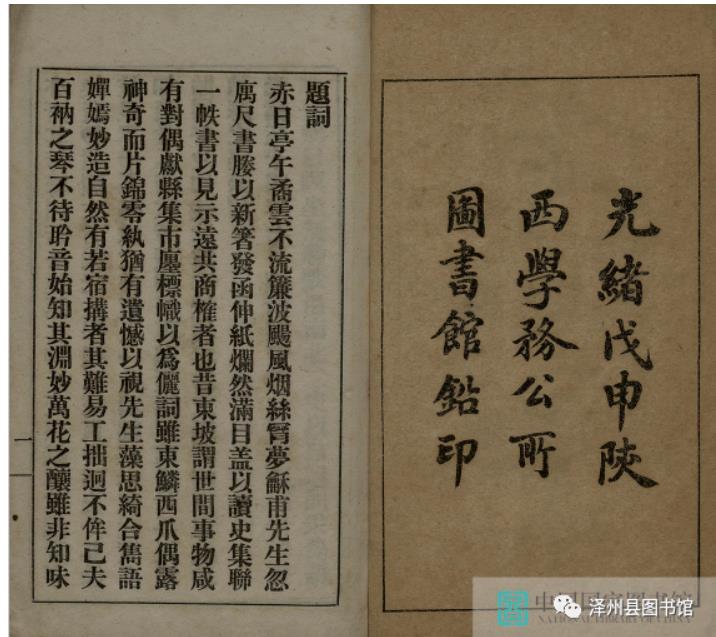 光緒戊申陝
西學務公所
圖書館鉛印
題詞
赤日亭午矞雲不流簾波颺風烟絲胃夢穌甫先生忽
厲尺書媵以新箸發函伸紙爛然滿目盖以讀史集聯
一帙書以見示遠共商榷者也昔東坡謂世間事物咸
有對偶獻縣集市廛標幟以爲儷詞雖東鱗西爪偶露
神奇而片錦零紈猶有遺憾以視先生藻思綺合雋語
嬋嫣妙造自然有若宿搆者其難易工拙迥不侔已夫
百衲之琴不待聆音始知其淵妙萬花之釀雖非知味
一
中国国家图书馆
NATIONAL LIBRARY OF CHINA
泽州县图书馆